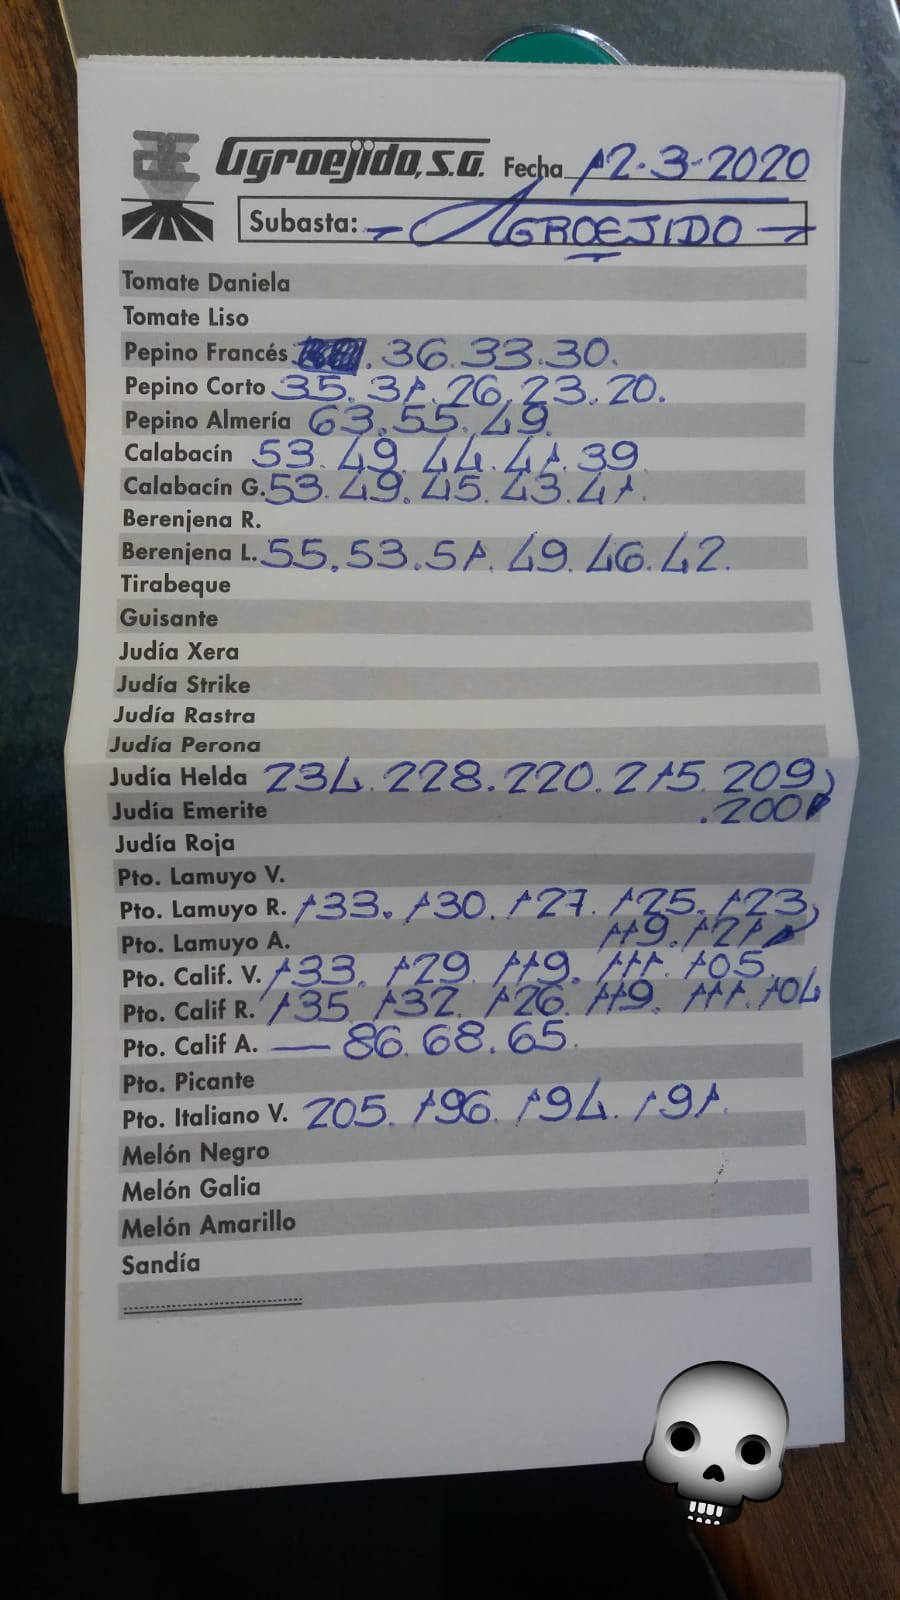 Agroejido, S.A. Fecha 12-3-2020
Subasta: - AGROEJIDO -
Tomate Daniela
Tomate Liso
Pepino Francés . 36. 33. 30.
Pepino Corto 35. 31. 26. 23. 20.
Pepino Almería 63. 55. 49.
Calabacín 53. 49. 44. 41. 39
Calabacín G. 53. 49. 45. 43. 41.
Berenjena R.
Berenjena L. 55. 53. 51. 49. 46. 42.
Tirabeque
Guisante
Judía Xera
Judía Strike
Judía Rastra
Judía Perona
Judía Helda 234. 228. 220. 215. 209
Judía Emerite .200
Judía Roja
Pto. Lamuyo V.
Pto. Lamuyo R. 133. 130. 127. 125. 123
Pto. Lamuyo A. 119. 121
Pto. Calif. V. 133. 129. 119. 111. 105.
Pto. Calif R. 135. 132. 126. 119. 111. 104
Pto. Calif A. — 86. 68. 65.
Pto. Picante
Pto. Italiano V. 205. 196. 194. 191.
Melón Negro
Melón Galia
Melón Amarillo
Sandía